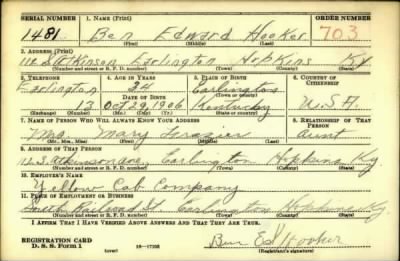 SERIAL NUMBER 1. NAME (Print) ORDER NUMBER
1481 Ben Edward Hooker 703
(First) (Middle) (Last)
2. ADDRESS (Print)
112 S Atkinson Earlington Hopkins Ky
(Number and street or R. F. D. number) (Town) (County) (State)
3. TELEPHONE 4. AGE IN YEARS 5. PLACE OF BIRTH 6. COUNTRY OF CITIZENSHIP
Earlington 34 Earlington
DATE OF BIRTH (Town or county)
13 Oct 29, 1906 Kentucky U.S.A.
(Exchange) (Number) (Mo.) (Day) (Yr.) (State or country)
7. NAME OF PERSON WHO WILL ALWAYS KNOW YOUR ADDRESS 8. RELATIONSHIP OF THAT PERSON
Mrs. Mary Frazier Aunt
(Mr., Mrs., Miss) (First) (Middle) (Last)
9. ADDRESS OF THAT PERSON
112 S. Atkinson Ave, Earlington Hopkins Ky
(Number and street or R. F. D. number) (Town) (County) (State)
10. EMPLOYER'S NAME
Yellow Cab Company
11. PLACE OF EMPLOYMENT OR BUSINESS
South Railroad St. Earlington Hopkins Ky
(Number and street or R. F. D. number) (Town) (County) (State)
I AFFIRM THAT I HAVE VERIFIED ABOVE ANSWERS AND THAT THEY ARE TRUE.
REGISTRATION CARD
D. S. S. Form 1 (over) Ben Ed Hooker
(Registrant's signature)